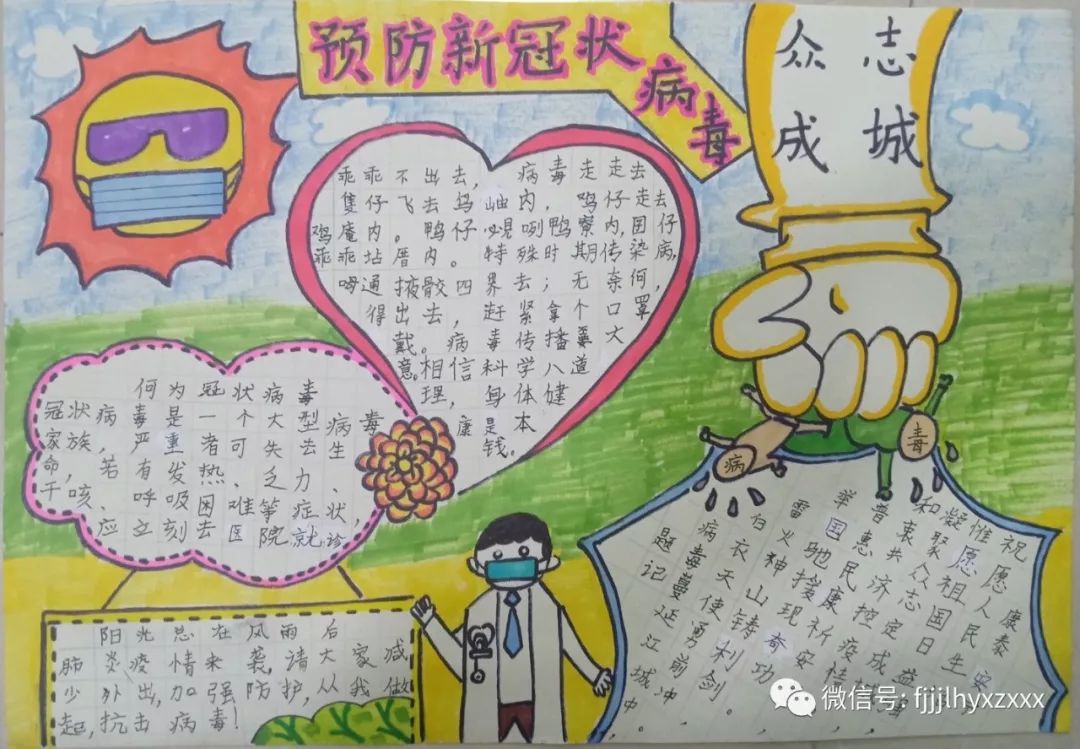 预防新冠状
病毒
众志
成城
乖乖不出去，病毒走走去
隻仔飞去坞岫内，鸡仔走去
鸡庵内。鸭仔 咧鸭寮内，囝仔
乖乖 厝内。特殊时期传染病，
呣通掖骹四界去；无奈何，
得出去，赶紧拿个口罩
戴。病毒传播 大
意。相信科学八道
理，身体健
康是本
钱。
何为冠状病毒
冠状病毒是一个大型病毒
家族，严重者可失去生
命，若有发热、乏力、
干咳、呼吸困难等症状，
应立刻去医院就诊
阳光总在风雨后
肺炎疫情来袭请大家减
少外出，加强防护，从我做
起，抗击病毒！
病
毒
祝愿人民安 康泰
惟愿祖国日生
和凝聚众志成
普衷共济定 益
举惠民控疫情
国驰援康祈安
雷火神山铸奇功
白衣天使勇前冲，利剑。
病毒蔓延江城中。
题记
微信号: fjjjlhyxzxxx